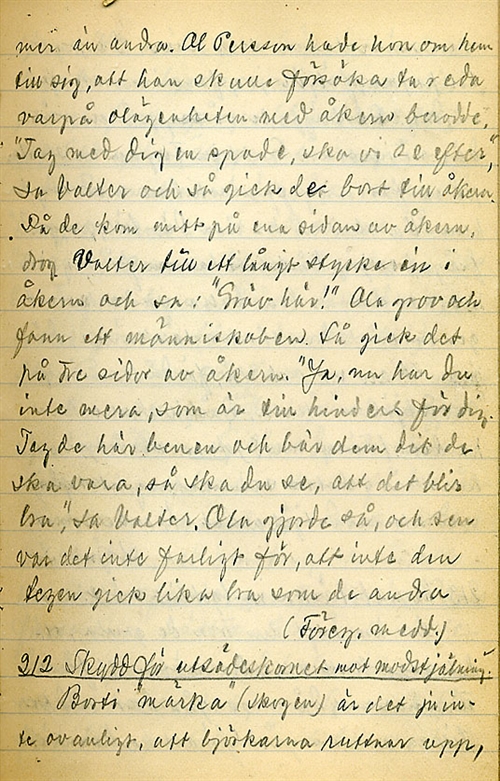 mer än andra. Ol Persson hade hon om hem
till sig, att han skulle försöka ta reda
varpå olägenheten med åkern berodde.
"Tag med dig en spade, ska vi se efter,"
sa Valter och så gick de bort till åkern.
Då de kom mitt på ena sidan av åkern,
drog Valter till ett långt stycke in i
åkern och sa: "Gräv här!" Ola grov och
fann ett människoben. Så gick det
på tre sidor av åkern. "Ja, nu har du
inte mera, som är till hinders för dig.
Tag de här benen och bär dem dit de
ska vara, så ska du se, att det blir
bra," sa Valter. Ola gjorde så, och sen
var det inte farligt för, att inte den
tegen gick lika bra som de andra
(Föreg. medd.)
312 Skydd för utsädeskornet mot modstjälning.
Borti "märka" (skogen) är det ju in-
te ovanligt, att björkarna ruttnar upp,